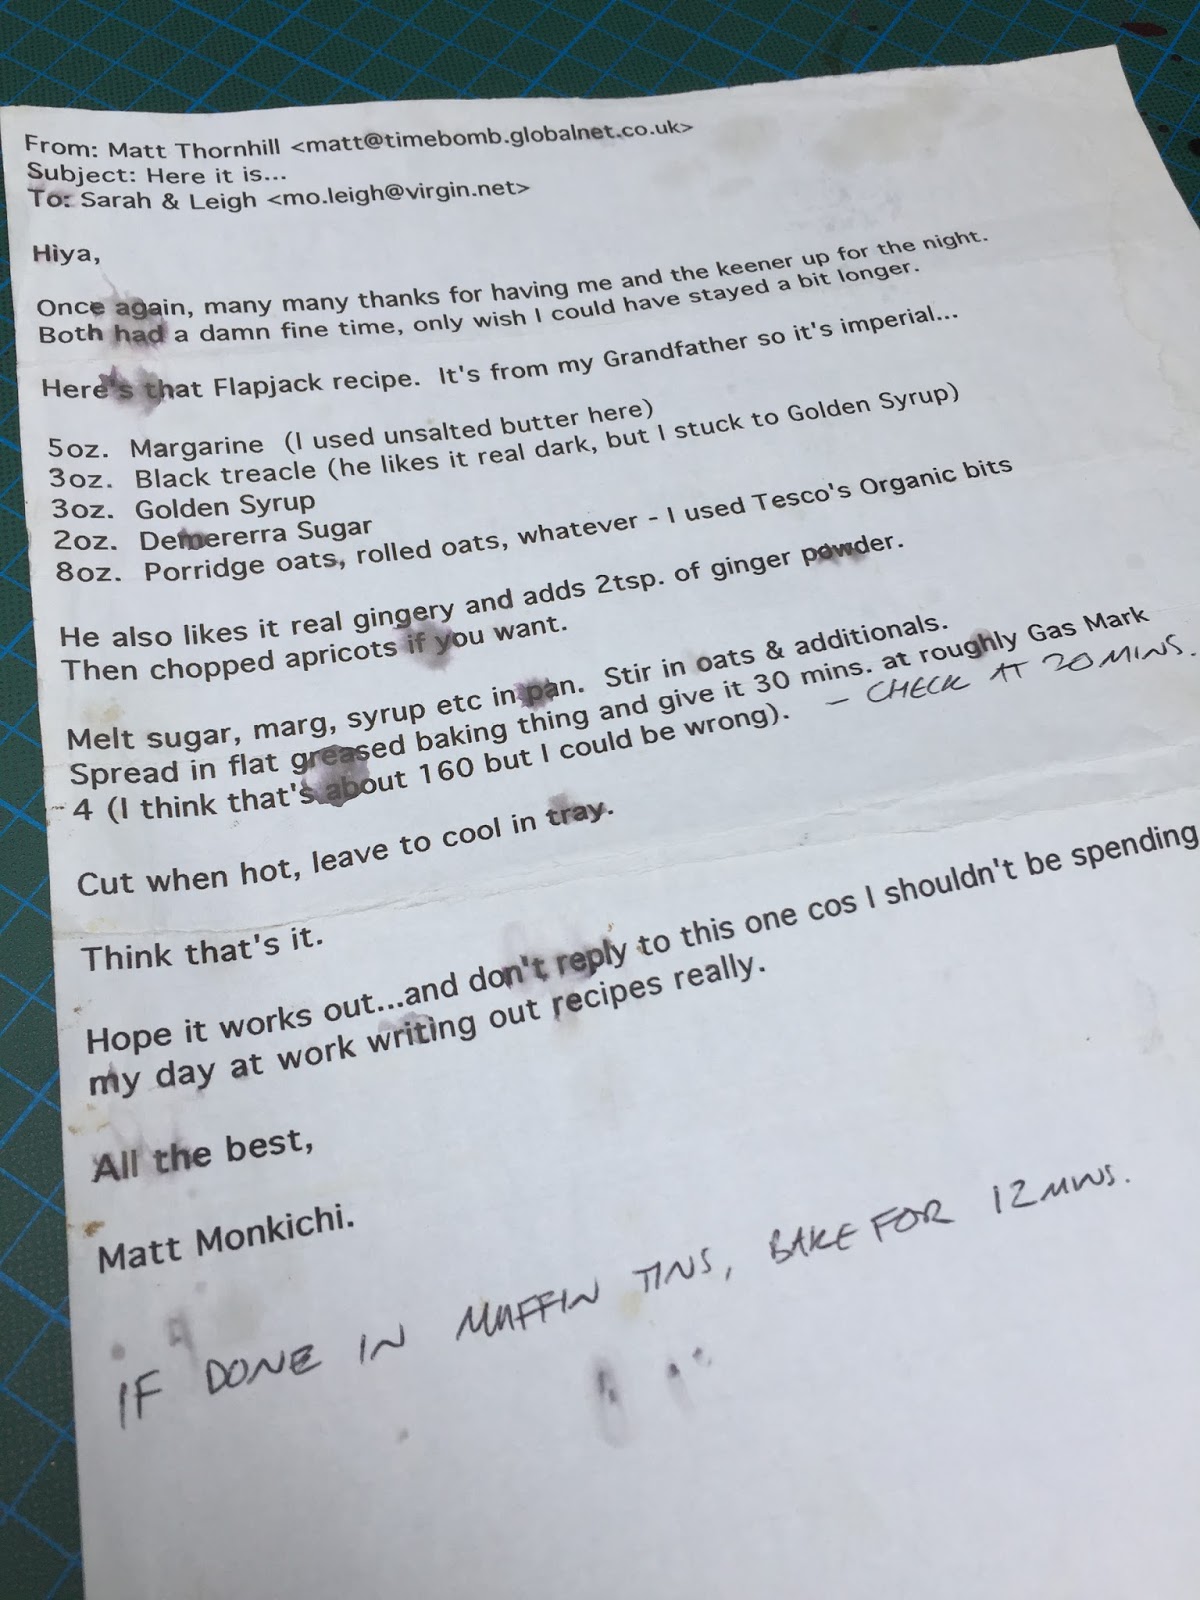 From: Matt Thornhill <matt@timebomb.globalnet.co.uk>
Subject: Here it is...
To: Sarah & Leigh <mo.leigh@virgin.net>
Hiya,
Once again, many many thanks for having me and the keener up for the night.
Both had a damn fine time, only wish I could have stayed a bit longer.
Here's that Flapjack recipe. It's from my Grandfather so it's imperial...
5oz. Margarine (I used unsalted butter here)
3oz. Black treacle (he likes it real dark, but I stuck to Golden Syrup)
3oz. Golden Syrup
2oz. Demererra Sugar
8oz. Porridge oats, rolled oats, whatever - I used Tesco's Organic bits
He also likes it real gingery and adds 2tsp. of ginger powder.
Then chopped apricots if you want.
Melt sugar, marg, syrup etc in pan. Stir in oats & additionals.
Spread in flat greased baking thing and give it 30 mins. at roughly Gas Mark
4 (I think that's about 160 but I could be wrong). – CHECK AT 20 MINS.
Cut when hot, leave to cool in tray.
Think that's it.
Hope it works out...and don't reply to this one cos I shouldn't be spending
my day at work writing out recipes really.
All the best,
Matt Monkichi.
IF DONE IN MUFFIN TINS, BAKE FOR 12 MINS.